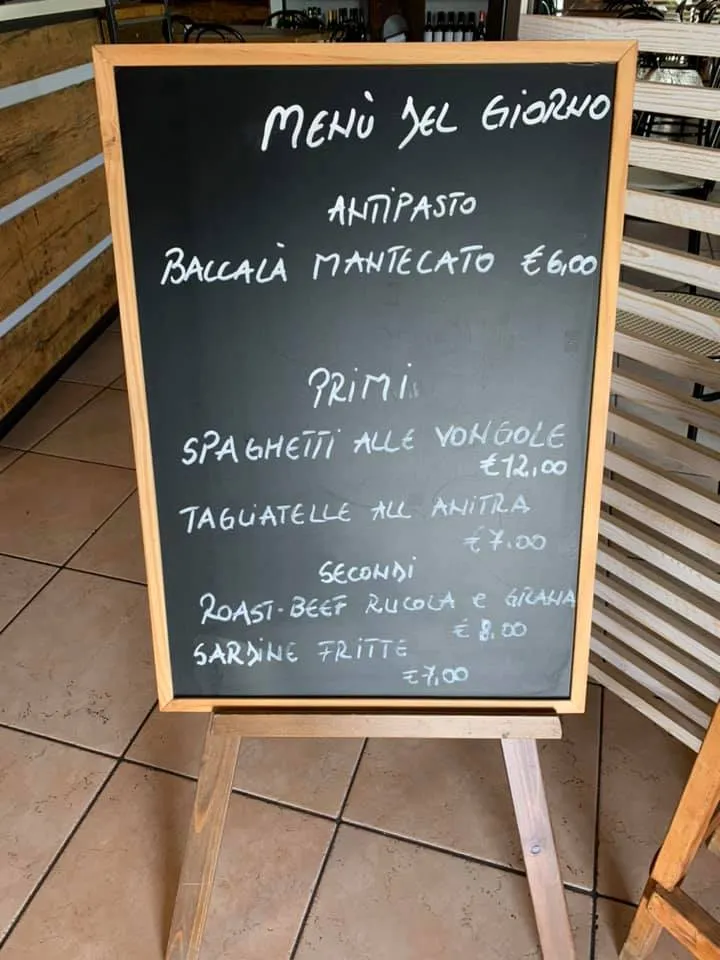 MENÙ DEL GIORNO
ANTIPASTO
BACCALÀ MANTECATO €6,00
PRIMI
SPAGHETTI ALLE VONGOLE
€12,00
TAGLIATELLE ALL ANITRA
€7.00
SECONDI
ROAST-BEEF RUCOLA e GRANA
€ 8.00
SARDINE FRITTE
€7,00